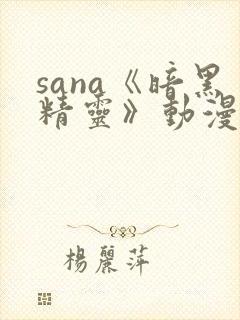 sana《暗黑
精靈》動漫
楊麗萍